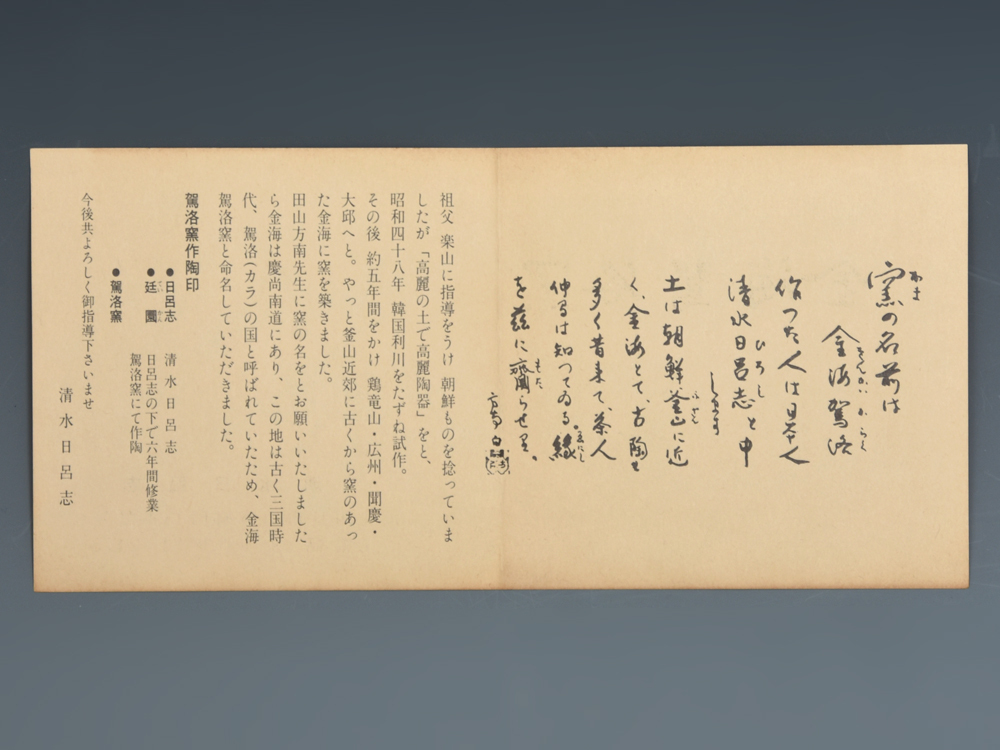 窯の名前は
金海駕洛
作つた人は日本人
清水日呂志と申
します
土は朝鮮釜山に近
く、金海とて、古陶を
多く昔来て、茶人
仲るは知つてゐる。緣
を茲に齎らせり。
方南白
祖父 楽山に指導をうけ 朝鮮ものを捻っていま
したが「高麗の土で高麗陶器」をと、
昭和四十八年 韓国利川をたずね試作。
その後 約五年間をかけ 鶏竜山・広州・聞慶・
大邱へと。やっと釜山近郊に古くから窯のあっ
た金海に窯を築きました。
田山方南先生に窯の名をとお願いいたしました
ら金海は慶尚南道にあり、この地は古く三国時
代、駕洛(カラ)の国と呼ばれていたため、金海
駕洛窯と命名していただきました。
駕洛窯作陶印
●日呂志 清水日呂志
●廷圜 日呂志の下で六年間修業
駕洛窯にて作陶
●駕洛窯
今後共よろしく御指導下さいませ
清水日呂志